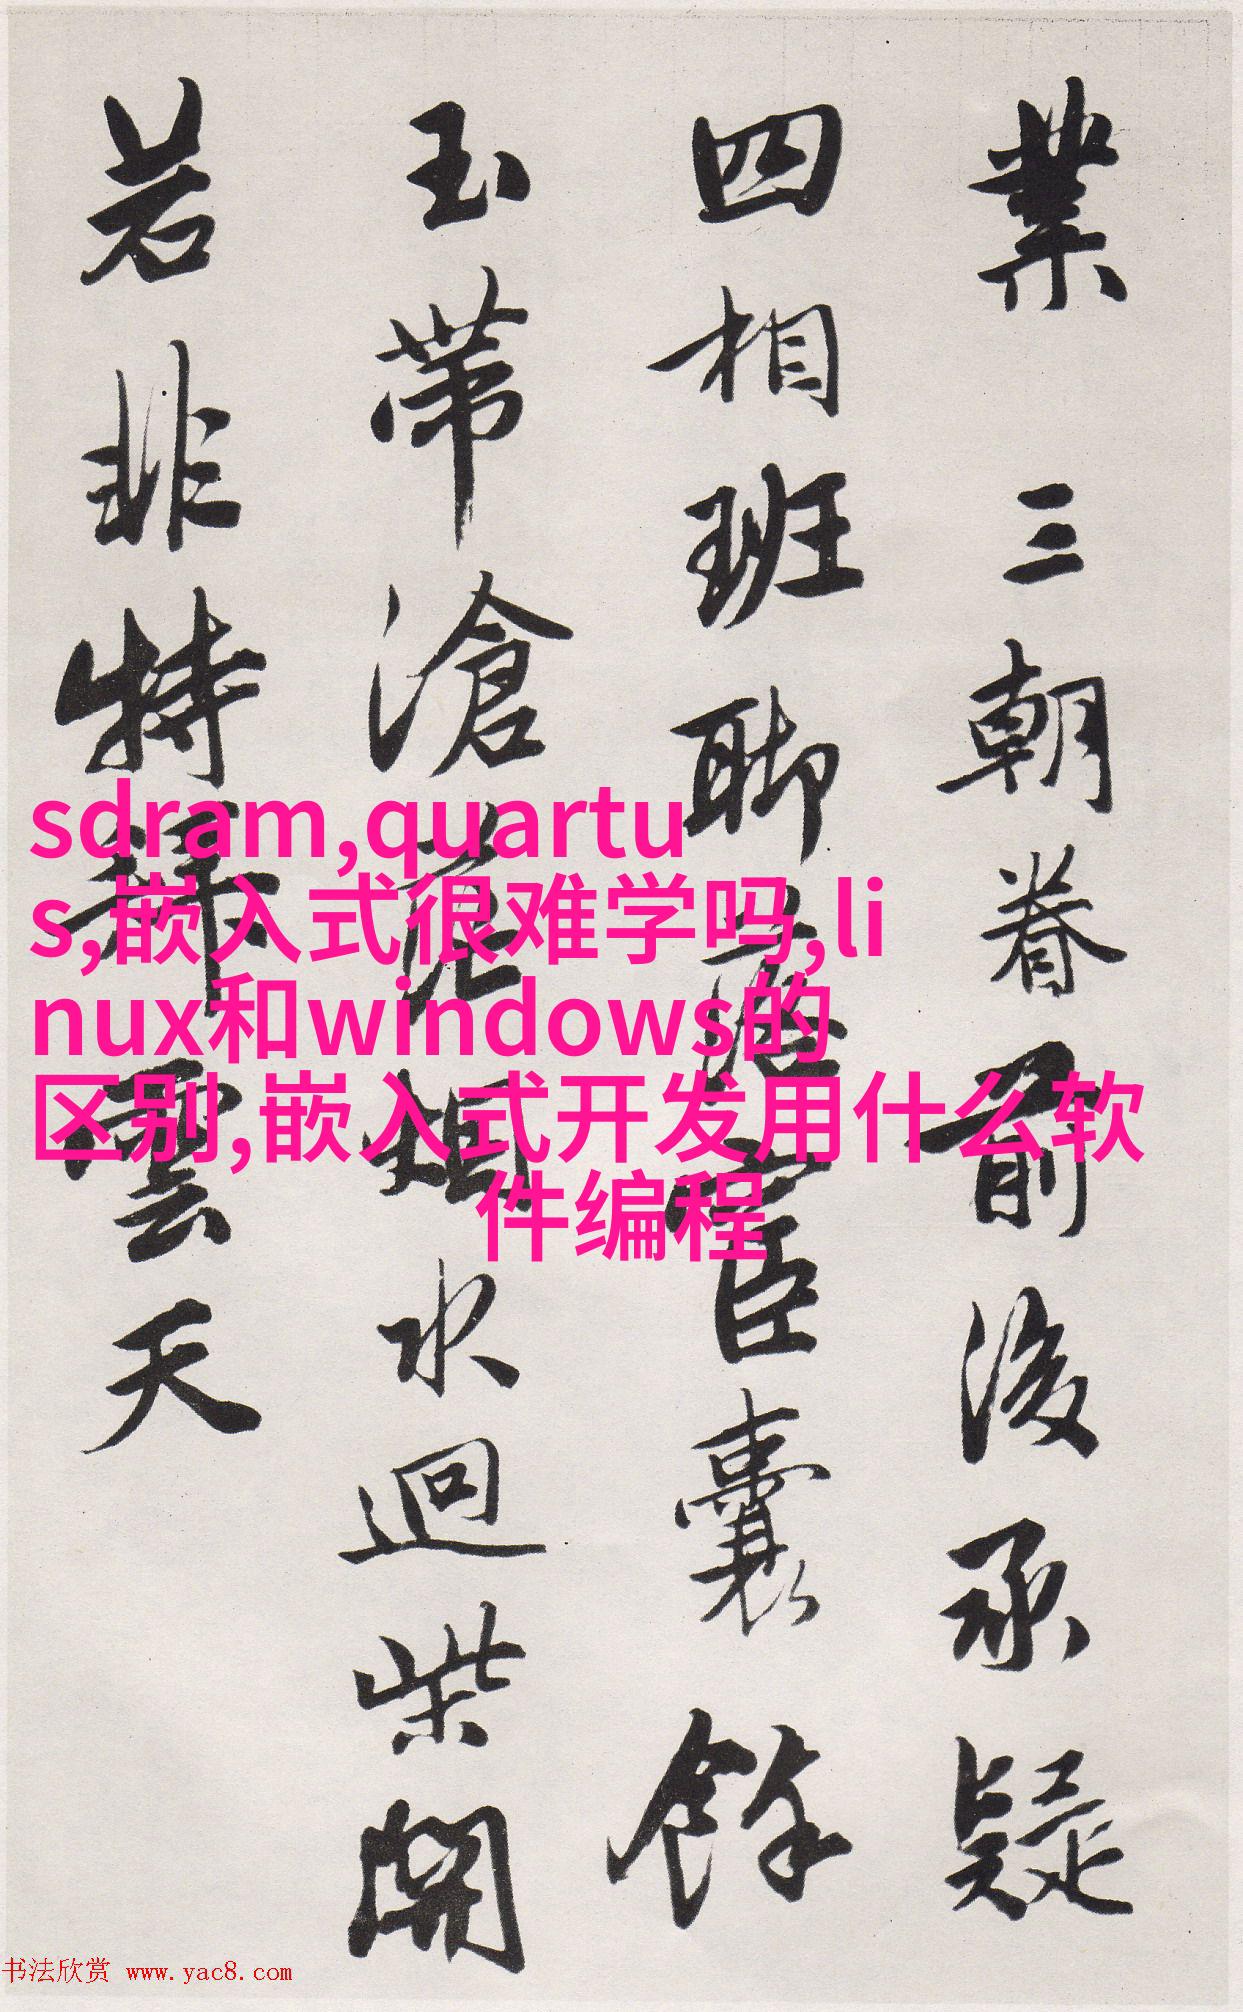 業 三朝眷前後承疑
四相班聊落宦囊餘
玉帶滄烟水迴柴開
若非特雲天
sdram,quartu
s,嵌入式很难学吗,li
nux和windows的
区别,嵌入式开发用什么软
件编程
书法欣赏 www.yac8.com